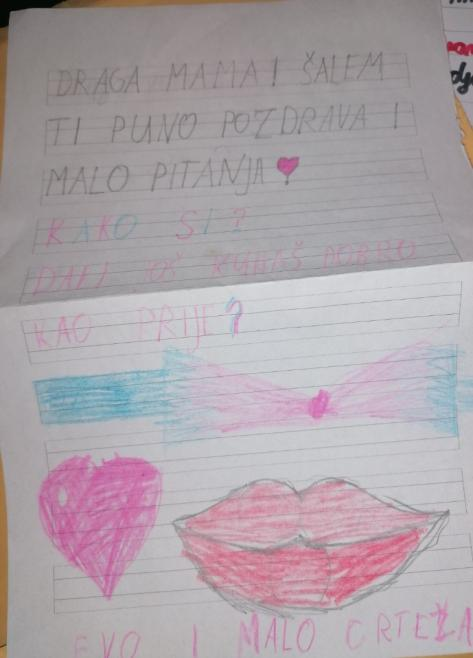 DRAGA MAMA! ŠALEM
TI PUNO POZDRAVA I
MALO PITANJA
KAKO SI?
DALI JOŠ KUHAŠ DOBRO
KAO PRIJE?
EVO I MALO CRTEŽA